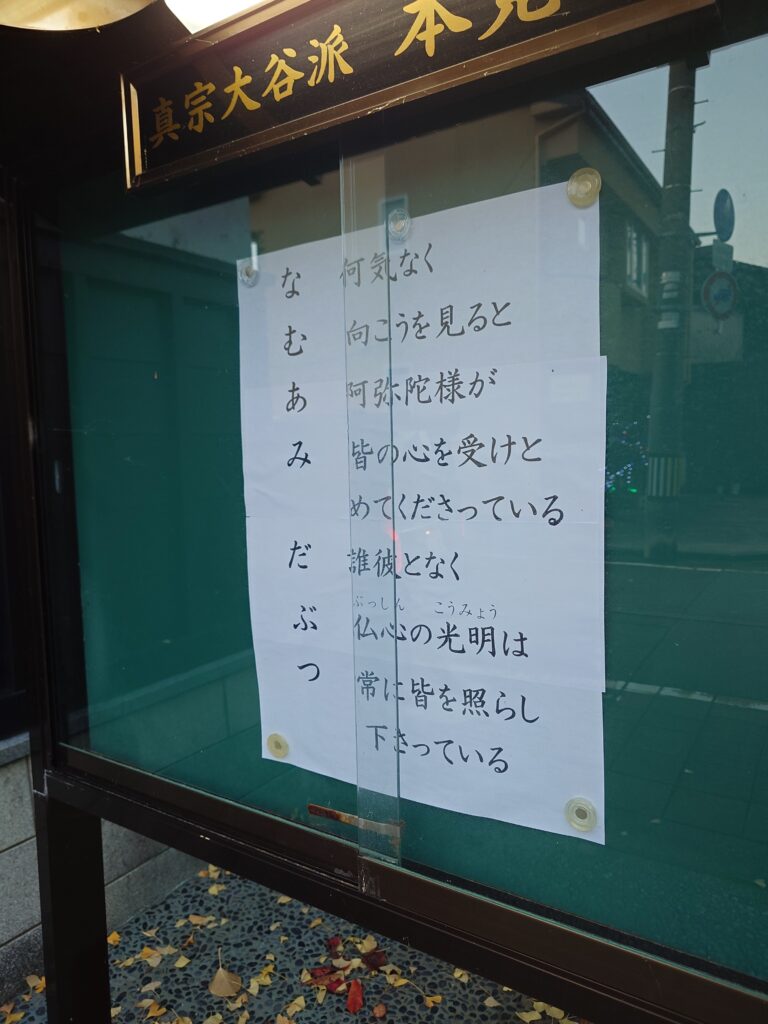 真宗大谷派 本
なむあみだぶつ
何気なく
向こうを見ると
阿弥陀様が
皆の心を受けと
めてくださっている
誰彼となく
ぶっしん こうみょう
仏心の光明は
常に皆を照らし
下さっている